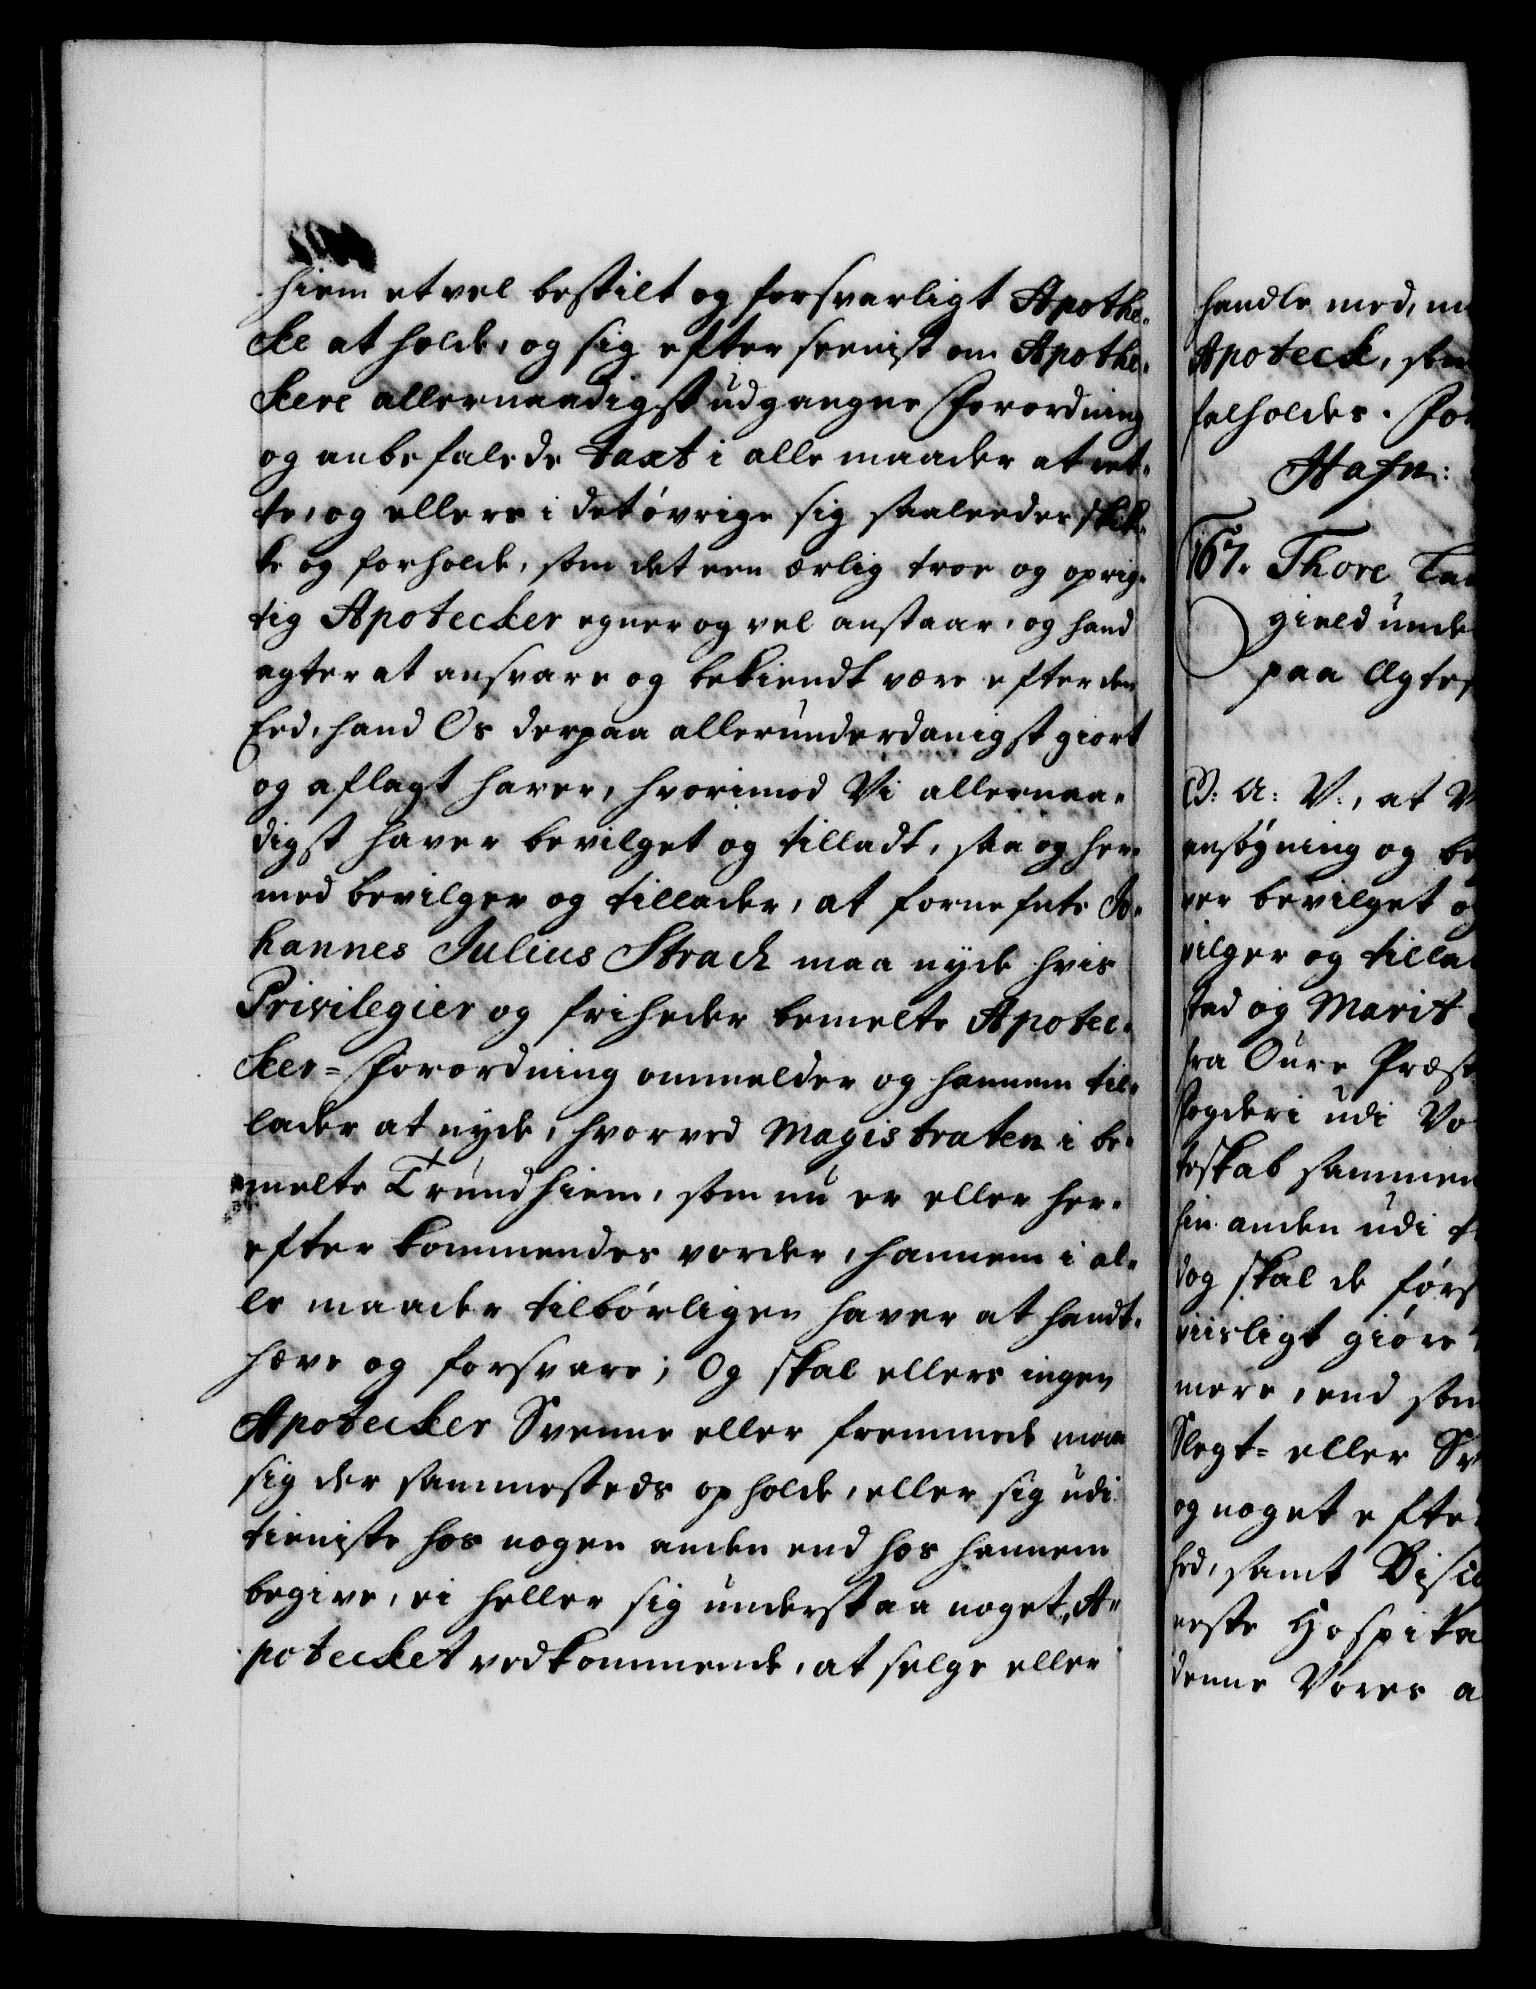 hiem et vel bestilt og forsvarligt Apothe-
cke at holde, og sig efter seenist om Apothe-
kere allernaadigst udgangne Forordning
og anbefalede taxt i alle maader at ret-
te, og ellers i det øvrige sig saaleedes skik-
ke og forholde, som det een ærlig troe og oprig-
tig Apotecker egner og vel anstaar, og hand
agter at ansvare og bekiendt være efter den
Eed, hand Os derpaa allerunderdanigst giort
og aflagt haver, hvorimod Vi allernaa-
digst haver bevilget og tilladt, saa og her-
med bevilger og tillader, at fornefnte Jo-
hannes Julius Strack maa nyde hvis
Privilegier og friheder bemelte Apotec-
ker-Forordning ommelder og hannem til-
lader at nyde, hvorved Magistraten i be-
melte Trundhiem, som nu er eller her-
efter kommendes vorder, hannem i al-
le maader tilbørligen haver at handt-
hæve og forsvare; Og skal ellers ingen
Apotecker Svenne eller fremmede maa
sig der sammesteds opholde, eller sig udi
tieniste hos nogen anden end hos hannem
begive, ei heller sig understaa noget, A-
potecket vedkommende, at selge eller
handle med,
Apoteck,
falholdes.
Hafn:
167. Thore
gield unde
paa Ægtes
G: A: V:, at V
ansøgning og be
ver bevilget og
vilger og tilla
sted og Marit
fra Oure Præst
fogderi udi Vo
teskab sammen
hin anden udi
dog skal de førs
viisligt giøre
mere, end som
Slegt- eller Sv
og noget efter
hed, samt Bisco
neste Hospita
denne Vores a